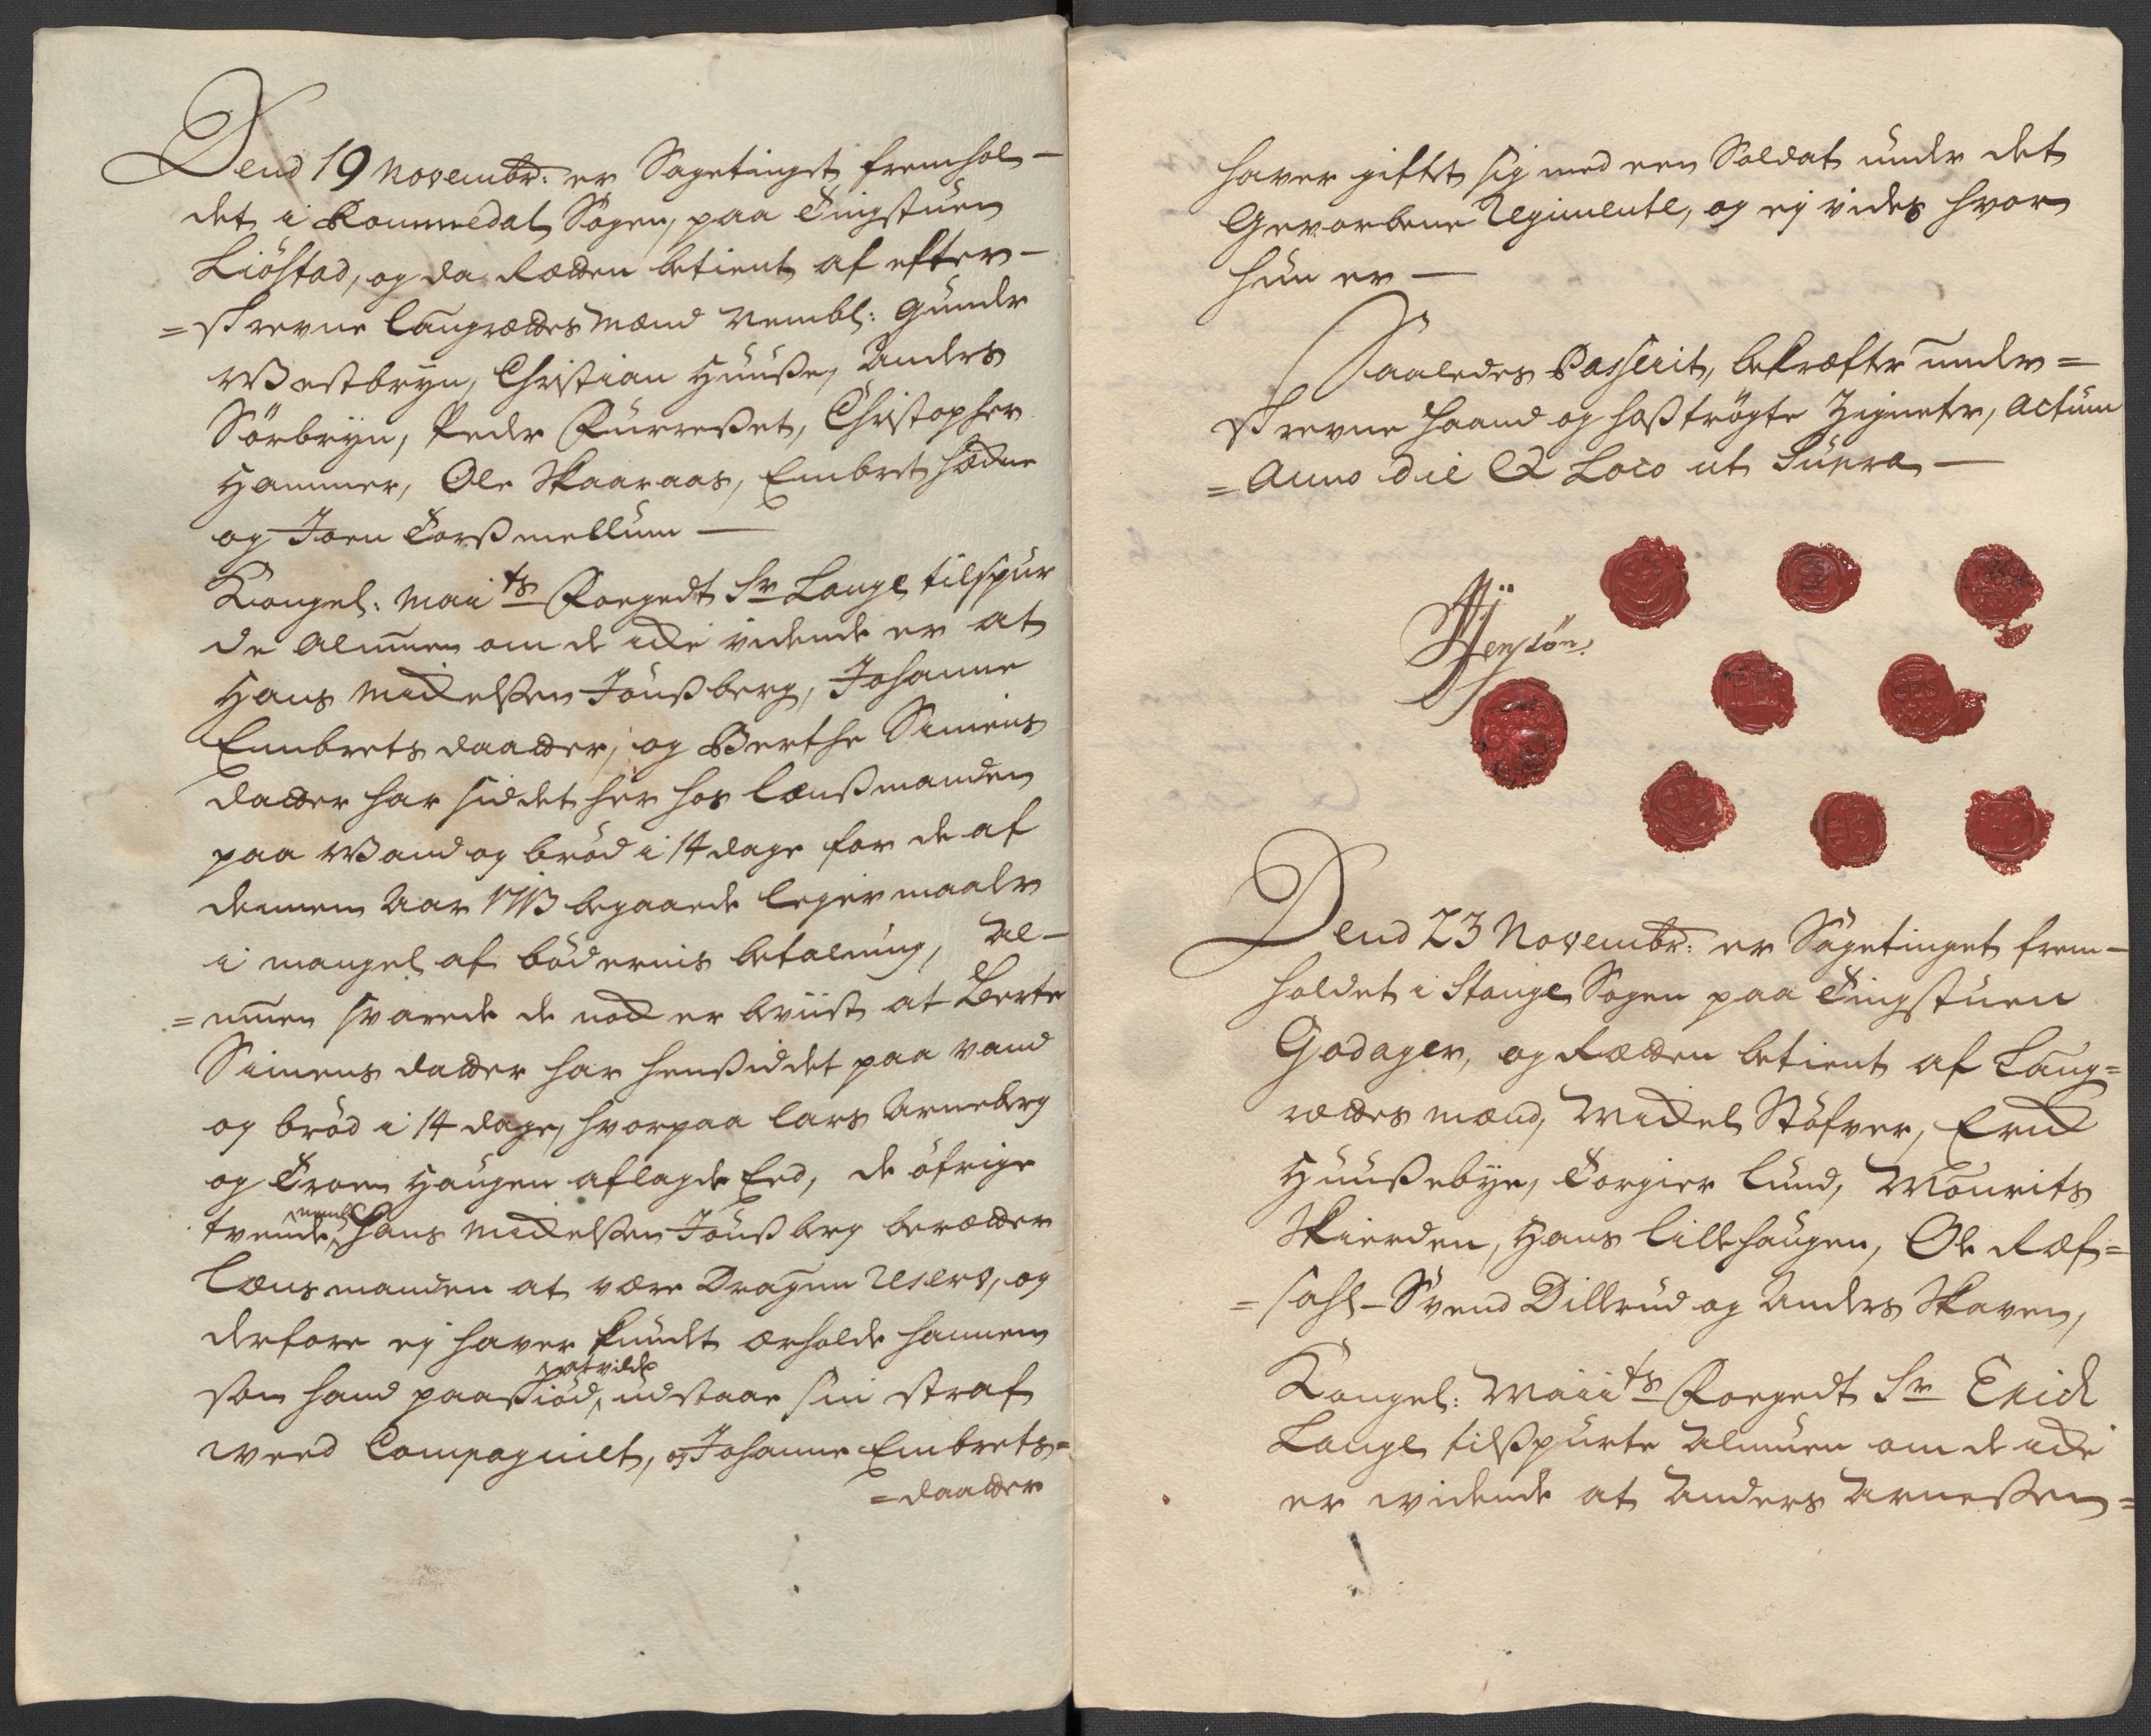 Dend 19 Novembr: er Sagetinget fremhol-
det i Rommedal Sogen, paa Tingstuen
Liöstad, og da Rætten betient af efter-
=skrevne Laugrættes Mænd Nembl: Gunder
Westbryn, Christian Huuße, Anders
Sörbryn, Peder Furreßet, Christopher
Hammer, Ole Skaaraas, Embret
og Joen Torßmellum -
Kongel: Maiits Foegedt Sr Lange tilspur
de Almuen om de icke vidende er at
Hans Mickelßen Jönßberg, Johanne
Embrets daatter, og Berthe Simens
datter har siddet her hos Lænßmanden
paa Wand og brød i 14 dage for de af
dennem Aar 1713 begaaede leyermaaler
i mangel af bödernis betalning, Al-
=muen svarede de nock er beviist at Berte
Simens datter har henßiddet paa vand
og bröd i 14 dage, hvorpaa Lars Arneberg
og Troen Haugen aflagde Eed, de öfrige
tvende, nembl: Hans Mickelßen Jönßberg beretter
Lænsmanden at være Dragun Reserv, og
derfore ej haver kundt erholde hannem
som hand paaßtod, at vilde udstaae sin straf
weed Compagniet, og Johanne Embrets=
=daatter
haver giftet sig med een Soldat under det
Gevorbene Regimente, og ej vides hvor
hun er -
Saaledes Passerit, bekræfter under=
skrevne Haand og hoßtrögte Zigneter, Actum
=Anno die & Loco ut Supra -
Jensön.
Dend 23 Novembr: er Sagetinget frem-
holdet i Stange Sogen paa Tingstuen
Godager, og Rætten betient af Laug=
rættes mænd, Mickel Stöfver, Erick
Huußebye, Torgier Lund, Mourits
Skierden, Hans Lillehaugen, Ole Ræf=
=sahl - Svend Dillerud og Anders Skaven,
Kongel: Maiits Foegedt Sr Erich
Lange tilßpurte Almuen om de icke
er widende at Anders Arneßen=